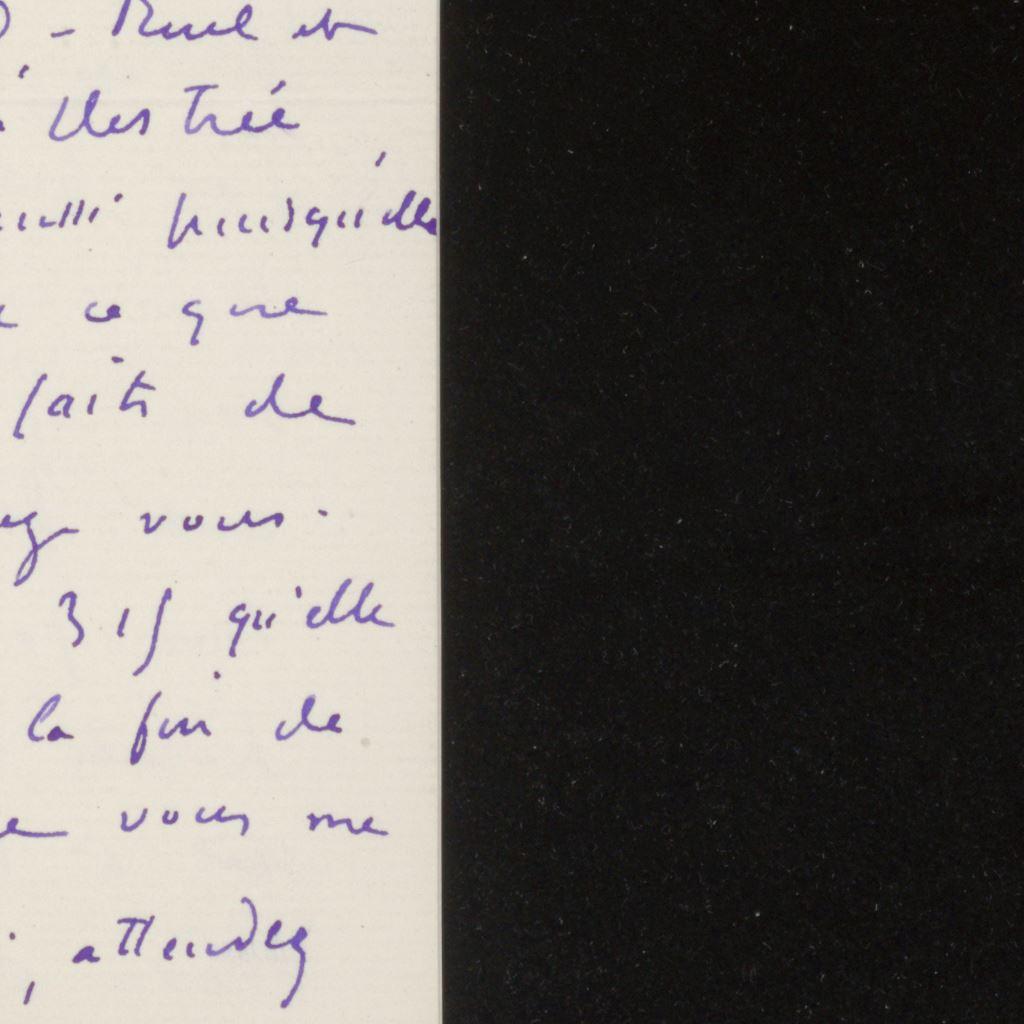 - Ruel et
Illustrée
aussi puisqu'elle
ce que
faits de
vous.
315 qu'elle
la fin de
vous me
, attendez